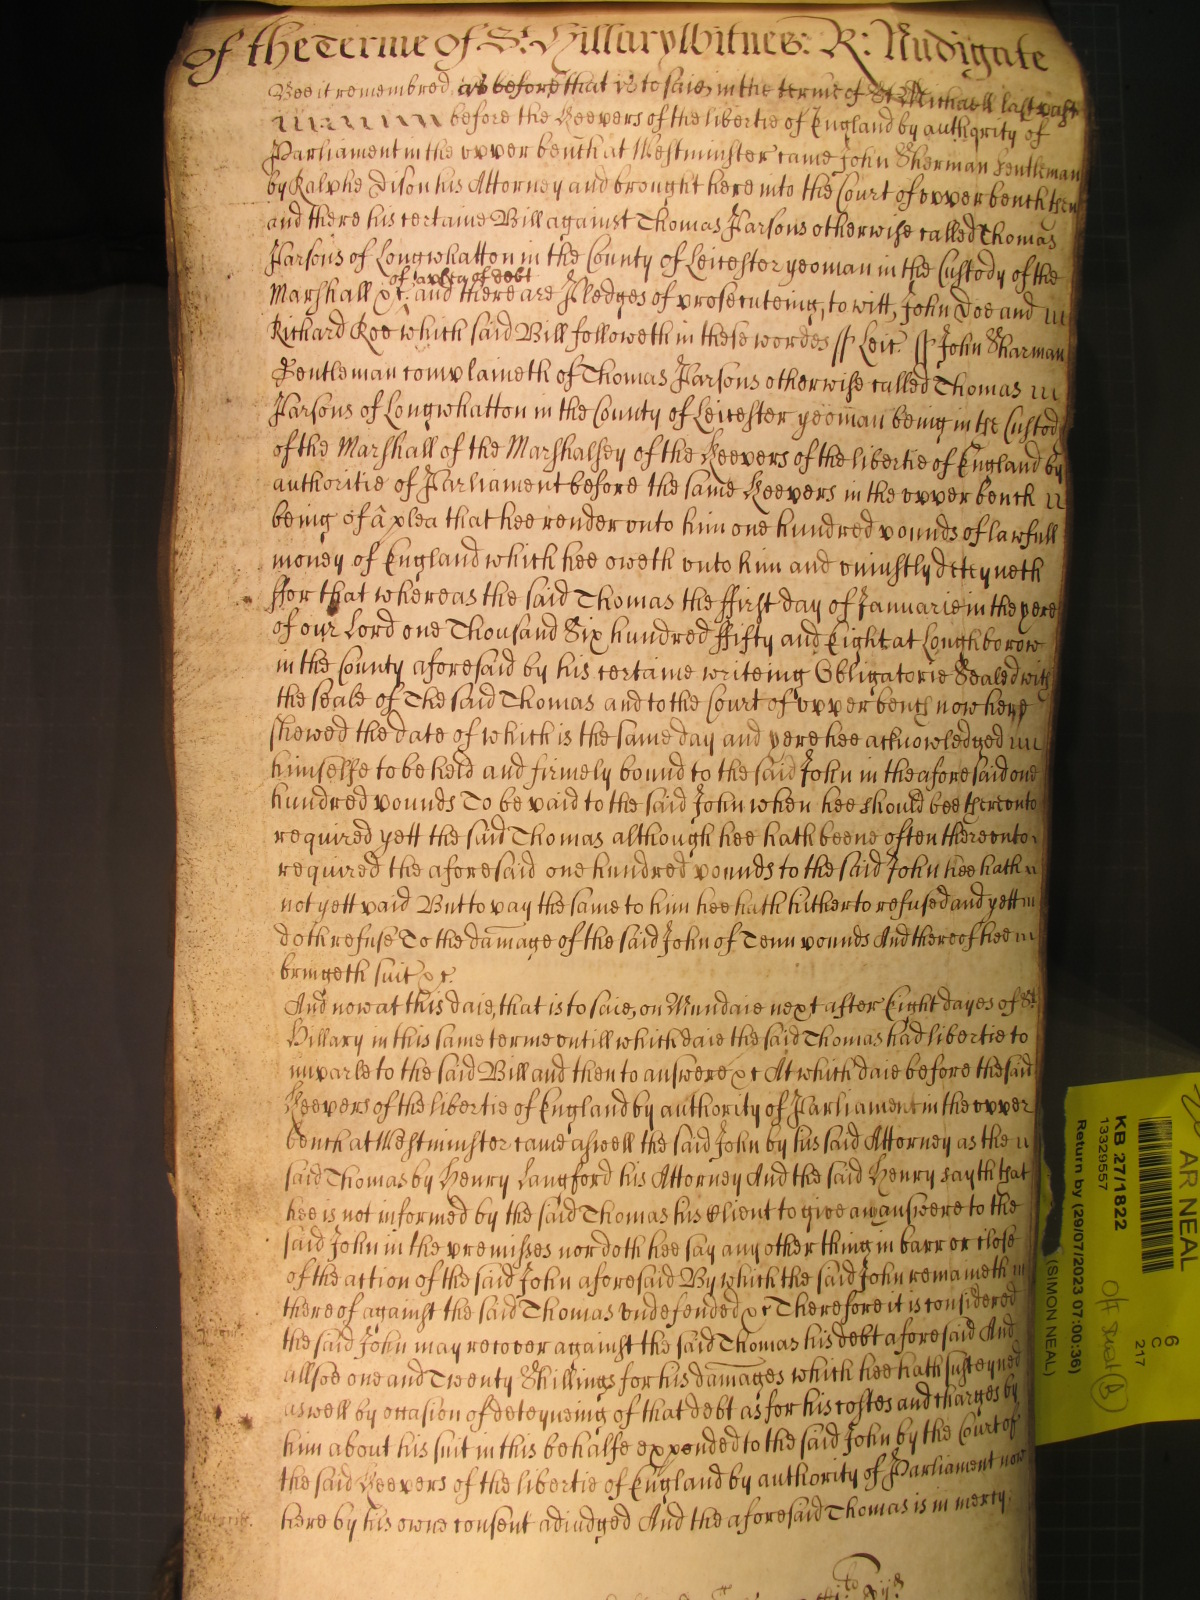 of the Terme of St. Hillary Witnes: R: Nudigate
Bee it remembred that is to saie, in the terme of St Michaell last past
before the Keepers of the libertie of England by authority of
Parliament in the upper bench at Westminster came John Sherman Gentleman
by Ralphe Dison his Attorney and brought here into the Court of upper bench then
and there his certaine Bill against Thomas Parsons otherwise called Thomas
Parsons of Longwhatton in the County of Leicester yeoman in the Custody of the
of a plea of debt
Marshall &c. and there are Pledges of prosecuteing, to witt, John Doe and
Richard Roe which said Bill followeth in these wordes ss Leic. ss John Sharman
Gentleman complaineth of Thomas Parsons otherwise called Thomas
Parsons of Longwhatton in the County of Leicester yeoman being in the Custody
of the Marshall of the Marshalsey of the Keepers of the libertie of England by
authoritie of Parliament before the same Keepers in the upper bench
being of a plea that hee render unto him one hundred pounds of lawfull
money of England which hee oweth unto him and uniustly deteyneth
ffor that whereas the said Thomas the ffirst day of Januarie in the yere
of our Lord one Thousand Six hundred ffifty and Eight at Loughborow
in the County aforesaid by his certaine writeing Obligatorie Sealed with
the seale of the said Thomas and to the Court of upper bench now here
shewed the date of which is the same day and yere hee acknowledged
himselfe to be held and firmely bound to the said John in the aforesaid one
hundred pounds To be paid to the said John when hee should bee thereunto
required yett the said Thomas although hee hath beene often thereunto
required the aforesaid one hundred pounds to the said John hee hath
not yett paid But to pay the same to him hee hath hitherto refused and yett
doth refuse To the damage of the said John of Tenn pounds And thereof hee
bringeth suit &c.
And now at this daie, that is to saie, on Mundaie next after Eight dayes of St
Hillary in this same terme untill which daie the said Thomas had libertie to
imparle to the said Bill and then to answere &c At which daie before the said
Keepers of the libertie of England by authority of Parliament in the upper
bench at Westminster came aswell the said John by his said Attorney as the
said Thomas by Henry Langford his Attorney And the said Henry sayth that
hee is not informed by the said Thomas his Client to give an answere to the
said John in the premisses nor doth hee say any other thing in barr or close
of the action of the said John aforesaid By which the said John remaineth
thereof against the said Thomas undefended &c Therefore it is considered
the said John may recover against the said Thomas his debt aforesaid And
allsoe one and Twenty Shillings for his damages which hee hath susteyned
aswell by occasion of deteyneing of that debt as for his costes and charges by
him about his suit in this behalfe expended to the said John by the Court of
the said Keepers of the libertie of England by authority of Parliament now
here by his owne consent adiudged And the aforesaid Thomas is in mercy.
AR NEAL
KB 27/1822
13329557
Return by (29/07/2023 07:00:36)
(SIMON NEAL)
6
C
217